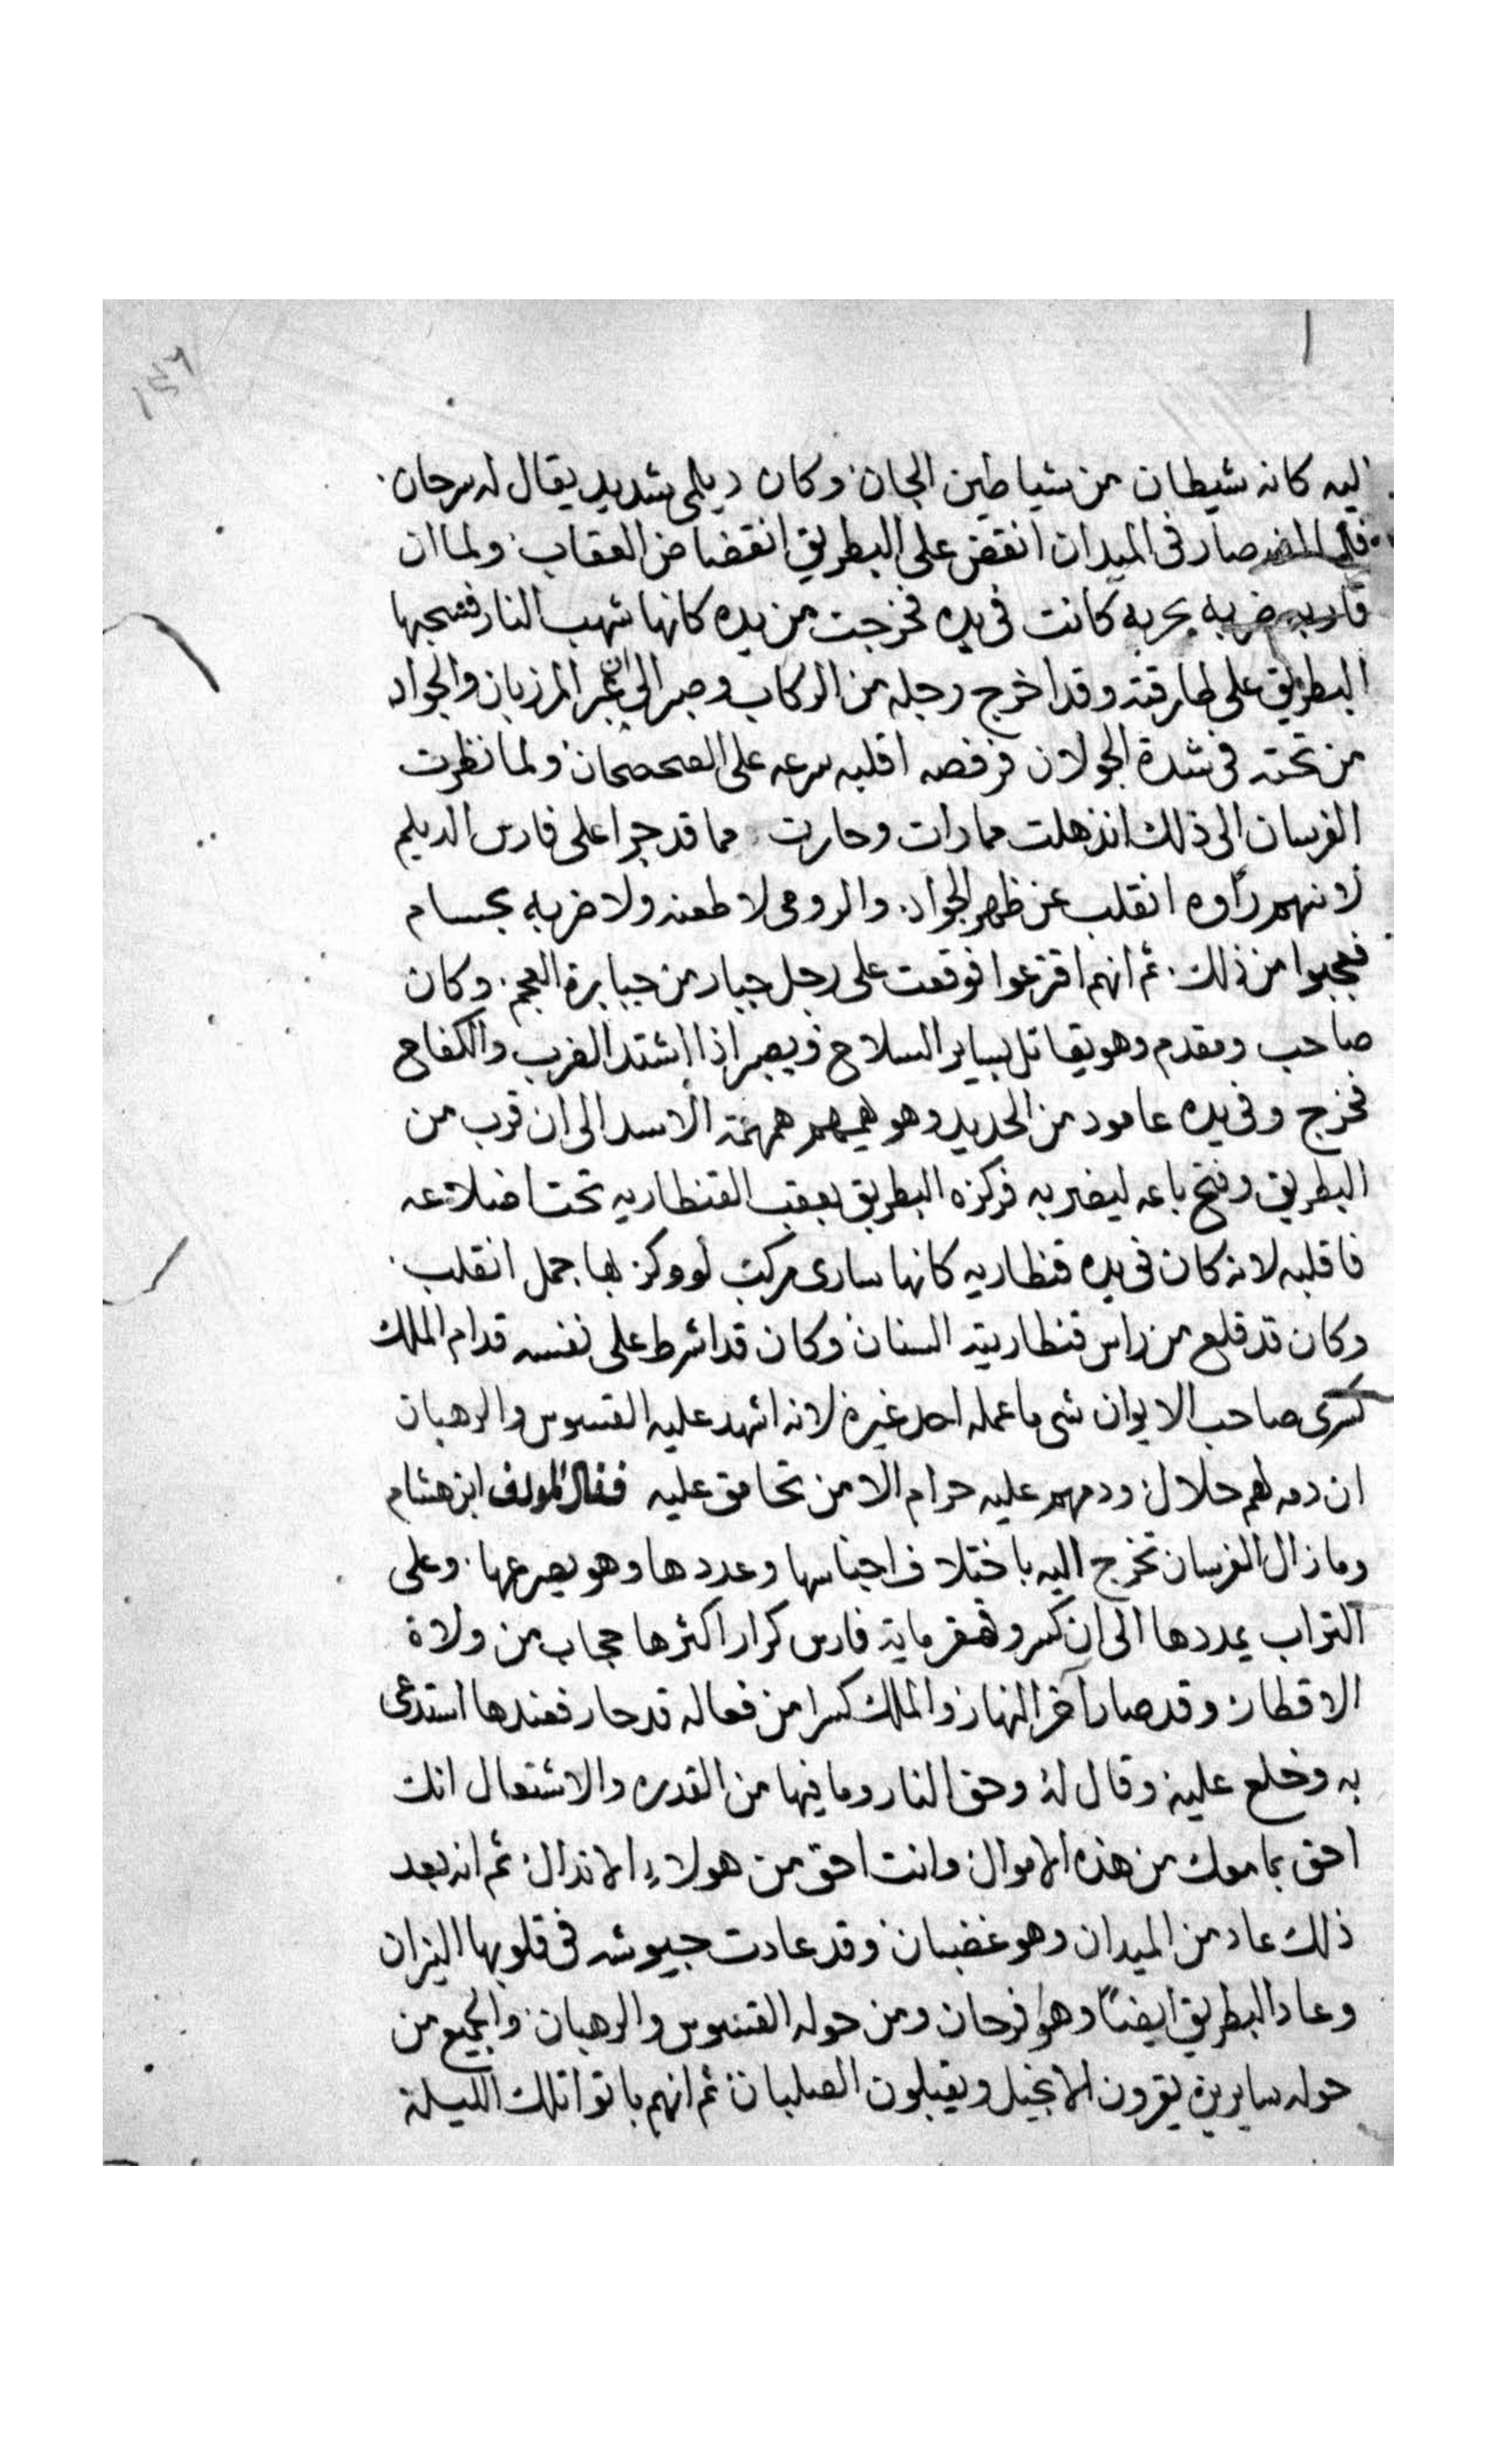 ١٤٦
اليه كانه شيطان من شياطين الجان وكان ديلمى شديد يقال له سرحان
صار فى الميدان انقض على البطريق انقضاض العقاب ولما ان
قاربه ضربه بحربه كانت فى يده فخرجت من يده كانها شهب النار فسحبها
البطريق على طارقته وقد اخرج رجله من الركاب وصبر الى ان عبر المرزبان والجواد
من تحته فى شدة الجولان فرفصه اقلبه سرعه على الصحصحان ولما نظرت
الفرسان الى ذلك انذهلت مما رات وحارت مما قد جرا على فارس الديلم
لانهم راوه انقلب عن ظهر الجواد والرومى لا طعنه ولا ضربه بحسام
فعجبوا من ذلك ثم انهم اقترعوا فوقعت على رجل جبار من جبابرة العجم وكان
صاحب ومقدم وهو يقاتل بساير السلاح ويصبر اذا اشتد الضرب والكفاح
فخرج وفى يده عامود من الحديد وهو يهمهم همهمة الاسد الى ان قرب من
البطريق وفتح باعه ليضربه فركزه البطريق بعقب القنطاريه تحت اضلاعه
فاقلبه لانه كان فى يده قنطاريه كانها سارى مركب لو وكز بها جمل انقلب
وكان قد قلع من راس قنطاريته السنان وكان قد اشرط على نفسه قدام الملك
كسرى صاحب الايوان شى ما عمله احد غيره لانه اشهد عليه القسوس والرهبان
ان دمه لهم حلال ودمهم عليه حرام الا من تحامق عليه فقال المولف ابن هشام
وما زال الفرسان تخرج اليه باختلاف اجناسها وعددها وهو يصرعها وعلى
التراب يمددها الى ان كسر وقهر ماية فارس كرار اكثرها حجاب من ولاة
الاقطار وقد صار آخر النهار والملك كسرا من فعاله قد حار فعندها استدعى
به وخلع عليه وقال له وحق النار وما فيها من القدره والاشتعال انك
احق بما معك من هذه الاموال وانت احق من هولاء الاندال ثم انه بعد
ذلك عاد من الميدان وهو غضبان وقد عادت جيوشه فى قلوبها النيران
وعاد البطريق ايضاً وهو فرحان ومن حوله القسوس والرهبان والجميع من
حوله سايرين يقرون الانجيل ويقبلون الصلبان ثم انهم باتوا تلك الليلة